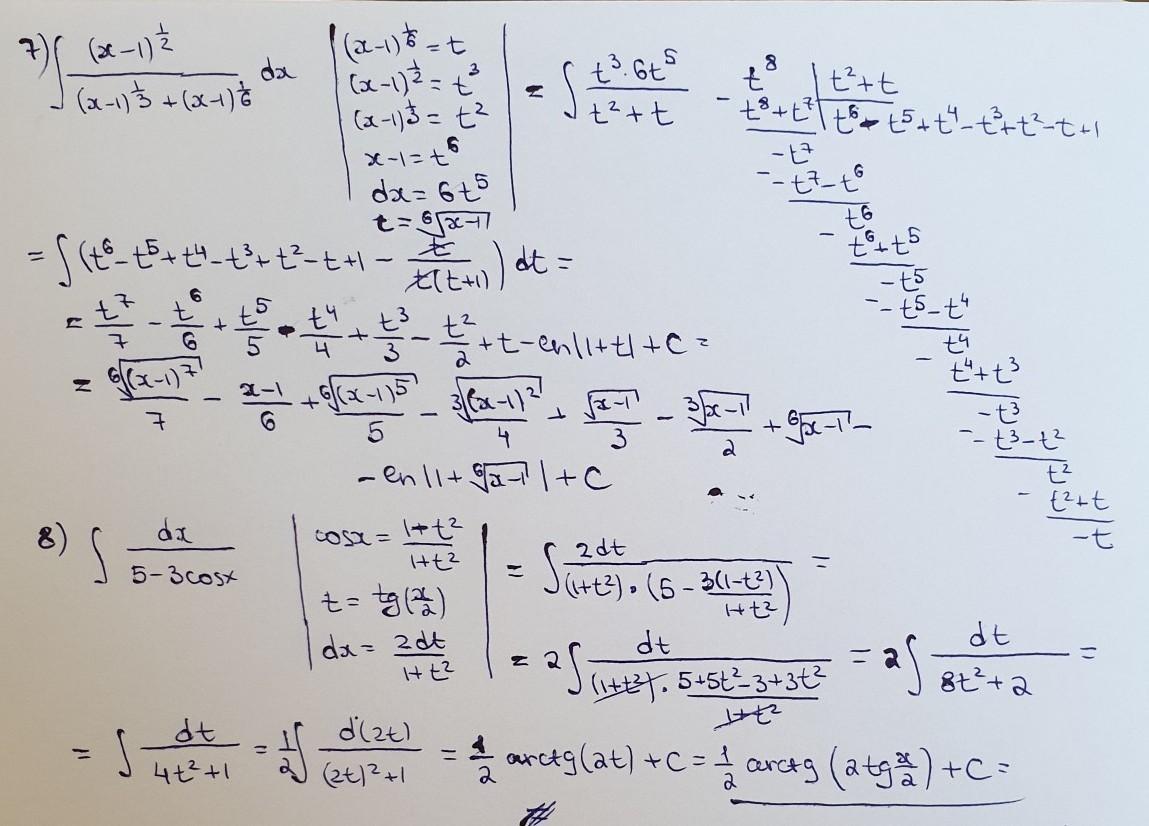 7) ∫ (x-1)^{1/2} / ((x-1)^{1/3} + (x-1)^{1/6}) dx | (x-1)^{1/6} = t
(x-1)^{1/2} = t^3
(x-1)^{1/3} = t^2
x-1 = t^6
dx = 6t^5
t = ⁶√(x-1) | = ∫ (t^3 · 6t^5) / (t^2 + t)
- t^8 | t^2 + t
t^8 + t^7 | t^6 - t^5 + t^4 - t^3 + t^2 - t + 1
-t^7
- -t^7 - t^6
t^6
- t^6 + t^5
-t^5
- -t^5 - t^4
t^4
- t^4 + t^3
-t^3
- -t^3 - t^2
t^2
- t^2 + t
-t
= ∫ (t^6 - t^5 + t^4 - t^3 + t^2 - t + 1 - t / (t(t+1))) dt =
= t^7/7 - t^6/6 + t^5/5 - t^4/4 + t^3/3 - t^2/2 + t - ln|1+t| + C =
= ⁶√((x-1)^7)/7 - (x-1)/6 + ⁶√((x-1)^5)/5 - ³√((x-1)^2)/4 + √(x-1)/3 - ³√(x-1)/2 + ⁶√(x-1) -
- ln|1 + ⁶√(x-1)| + C
8) ∫ dx / (5-3cosx) | cosx = (1+t^2)/(1+t^2)
t = tg(x/2)
dx = 2dt/(1+t^2) | = ∫ 2dt / ((1+t^2) · (5 - 3(1-t^2)/(1+t^2))) =
= 2∫ dt / ((1+t^2) · (5+5t^2-3+3t^2)/(1+t^2)) = 2∫ dt / (8t^2+2) =
= ∫ dt / (4t^2+1) = 1/2 ∫ d(2t) / ((2t)^2+1) = 1/2 arctg(2t) + C = 1/2 arctg(2tg x/2) + C =